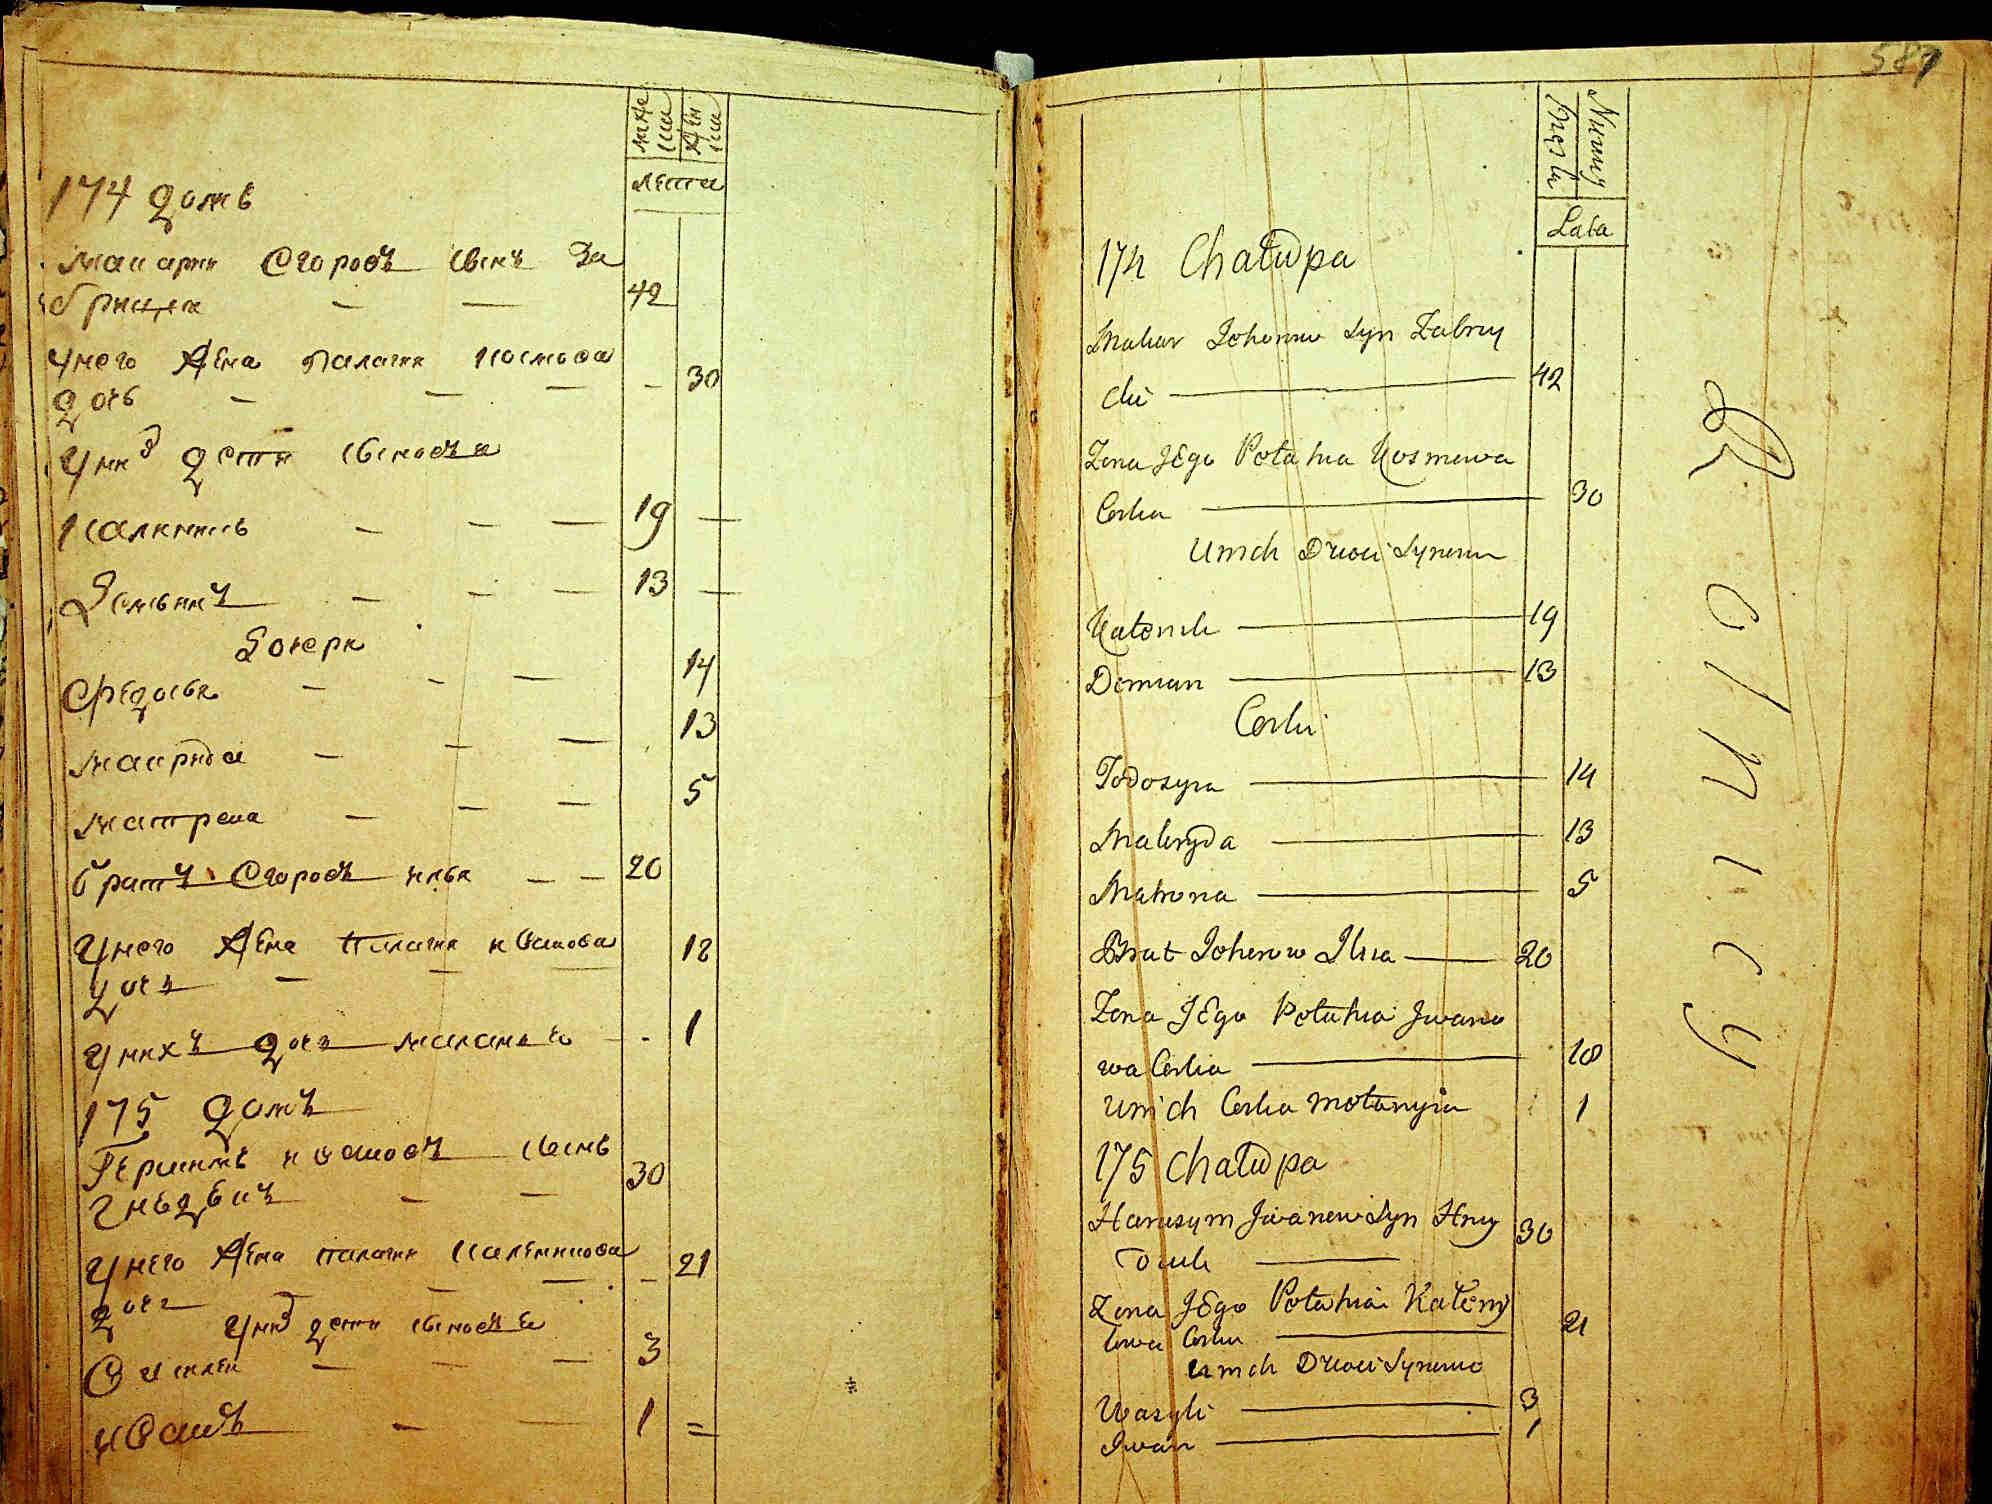 174 домъ
макаръ Егоровъ сынъ За
брицки — — 42
У него жена Палагия Космова
дочь — — — 30
У них дети сыновья
Калиникъ — — — 19 —
Демьянъ — — — 13 —
Дочери
Федосья — — — 14
макрида — — — 13
матрена — — — 5
братъ Егоровъ илья — — 20
У него жена Палагия иванова 18
дочь — — —
У нихъ дочь маланья — 1
175 домъ
Герасимъ ивановъ сынъ
Гнедвичъ — — 30
У него жена палагия Каленикова — 21
дочь — —
У них дети сыновья
Василеи — — — 3
иванъ — — 1 =
лета
587
Lata
174 Chałupa
Makar Iohorow Syn Zabry
cki 42
Zona JEgo Połahia Kosmowa
Corka 30
Unich Dzieci Synowie
Kałenik 19
Demian 13
Corki
Todosyia 14
Makryda 13
Matrona 5
Brat Iohorow Ilia 20
Zona JEgo Połahia Jwano
wa Corka 18
Unich Corka Mołanyia 1
175 Chałupa
Harasym Jwanow Syn Hny
Zona JEgo Połahia Kałeny
kowa Corka 21
Unich Dzieci Synowie
Wasyli 3
Jwan 1
Rolnicy